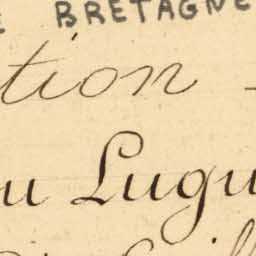 BRETAGNE
tion -
u Lugu